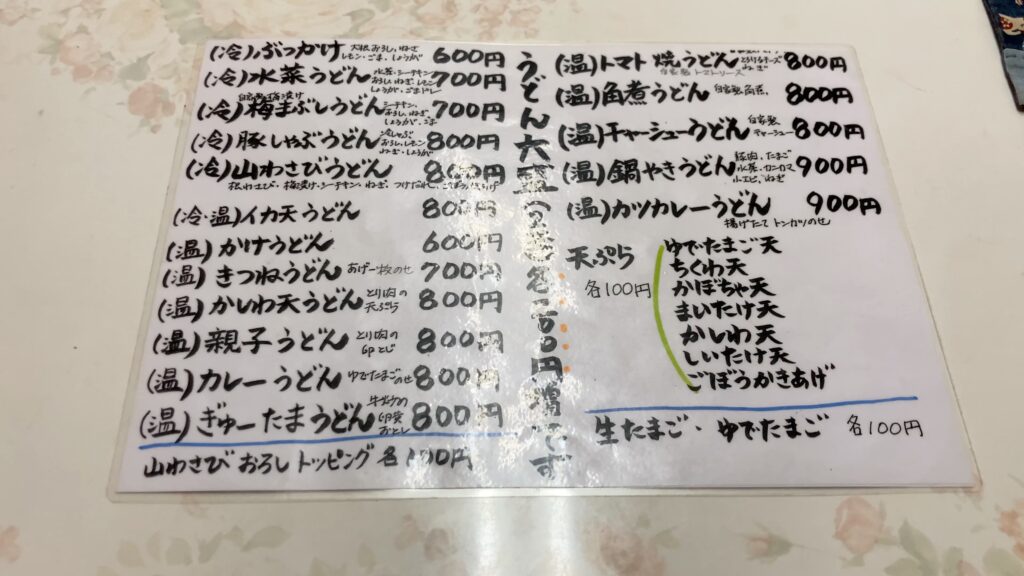 (冷)ぶっかけ 大根おろし、ねぎ レモン・ごま・しょうが 600円
(冷)水菜うどん 水菜・シーチキン おろし・ねぎ・レモン しょうが・ごまドレ 700円
(冷)梅まぶしうどん シーチキン、おろし、ねぎ、しょうが、ごま 700円
(冷)豚しゃぶうどん 冷しゃぶ おろし、レモン ねぎ・しょうが 800円
(冷)山わさびうどん 800円
根わさび・梅漬け・シーチキン・ねぎ・つけだれ
(冷・温)イカ天うどん 800円
(温)かけうどん 600円
(温)きつねうどん あげ一枚のせ 700円
(温)かしわ天うどん とり肉の 天ぷら 800円
(温)親子うどん とり肉の 卵とじ 800円
(温)カレーうどん ゆでたまごのせ 800円
(温)ぎゅーたまうどん 800円
山わさび おろし トッピング 各100円
うどん大盛 各 円増です
(温)トマト焼うどん 800円
自家製トマトソース
(温)角煮うどん 自家製角煮、 800円
(温)チャーシューうどん 自家製 チャーシュー 800円
(温)鍋やきうどん 豚肉、たまご 水菜、カニカマ 小エビ、ねぎ 900円
(温)カツカレーうどん 900円
揚げたて トンカツのせ
天ぷら
各100円
ゆでたまご天
ちくわ天
かぼちゃ天
まいたけ天
かしわ天
しいたけ天
ごぼうかきあげ
生たまご・ゆでたまご 各100円